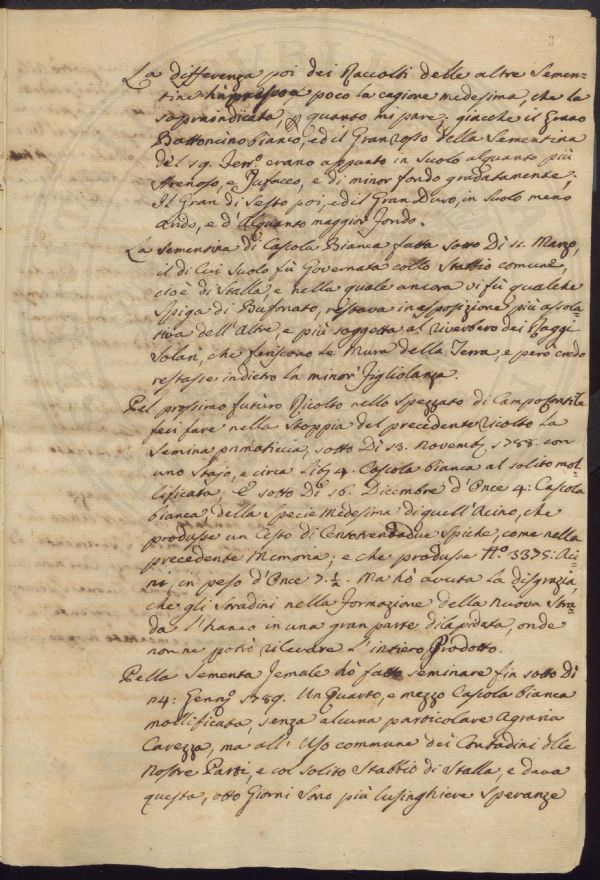 3
La differenza poi dei Raccolti delle altre Semen=
tine poco la cagione medesima, che la
sopraindicata, quanto mi pare; giacche il Grano
Battoncino bianco, ed il Gran rosso della Sementina
del 19. Jenn.º erano appunto in Suolo alquanto più
Arenoso, e Tufacco, e di minor fondo gradatamente;
Il Gran di Sesto poi, ed il Gran Duro, in Suolo meno
Arido, e d'Alquanto maggior fondo.
La sementina di Cascola Bianca fatta sotto Di 11. Marzo,
il di Cui Suolo fù Governato collo Stabbio comune,
cioè di Stalla, e nella quale ancora vi fù qualche
Spiga di Bufonato, restava in esposizione più assola=
tiva dell'Altre, e più soggetta al riverbero dei Raggi
Solari, che feriscono le Mura della Terra, e però credo
restasse indietro la minor figliolanza.
Pel prossimo futuro Ricolto nello Spezzato di Campo
feci fare nella Stoppia del precedente ricolto La
Semina primaticcia, sotto Di 13. Novemb. 1788. con
uno Stajo, e circa Lib. 4. Cascola bianca al solito mol=
lificata; E sotto Di 16. Dicembre d'Once 4: Cascola
bianca della Specie Medesima di quell'Acino, che
produsse un Cesto di Centotrentadue Spiche, come nella
precedente Memoria; e che produsse Nº 3375: Aci=
ni, in peso d'Once 7.½. Ma hò avuta la disgrazia,
che gli Stradini nella Formazione della nuova Stra=
da l'hanno in una gran parte dilapidata, onde
non ne potrò rilevare l'intiero Prodotto.
Nella Sementa Jemale hò fatto seminare fin sotto Di
14: Genn. 1789. Un Quarto, e mezzo Cascola bianca
mollificata, senza alcuna particolare Agraria
Carezza, ma all'Uso commune dei Contadini delle
Nostre Parti, e col solito Stabbio di Stalla, e dava
questa, otto Giorni Sono più lusinghiere Speranze